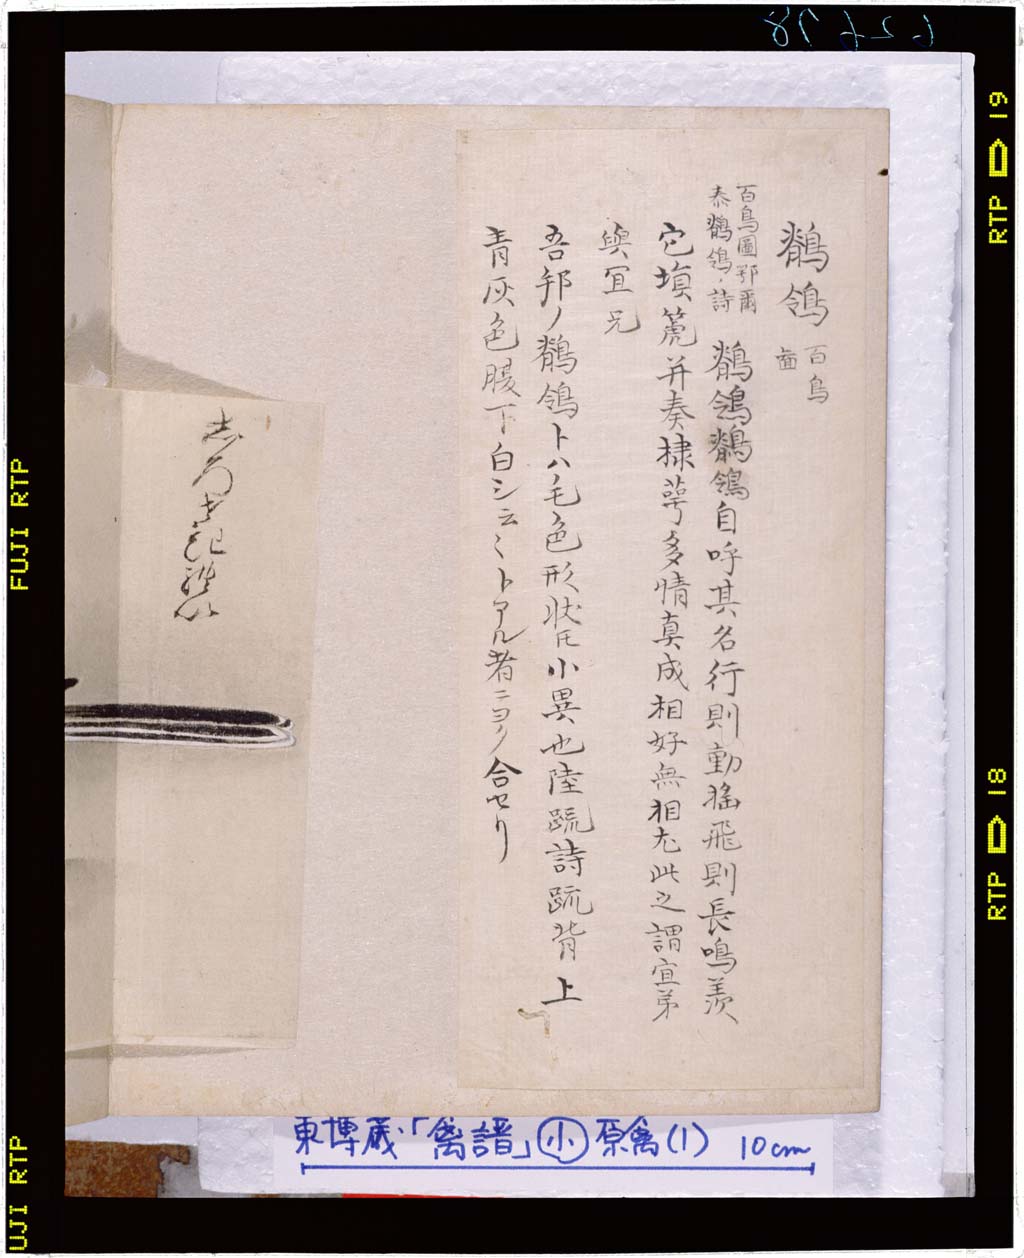 鶺鴒 百鳥
啚
百鳥圖鄂爾
泰鶺鴒ノ詩
鶺鴒鶺鴒自呼其名行則動揺飛則長鳴羨
它塤篪并奏棣萼多情真成相好無相尤此之謂宜弟
與宜兄
吾邦ノ鶺鴒トハ毛色形状𪜈小異也陸疏詩疏背上
青灰色腹下白シ云〻トアル者ニヨク合セリ
東博蔵「禽譜」小 原禽(1) 10cm
RTP 19
RTP 18
FUJI RTP
UJI RTP